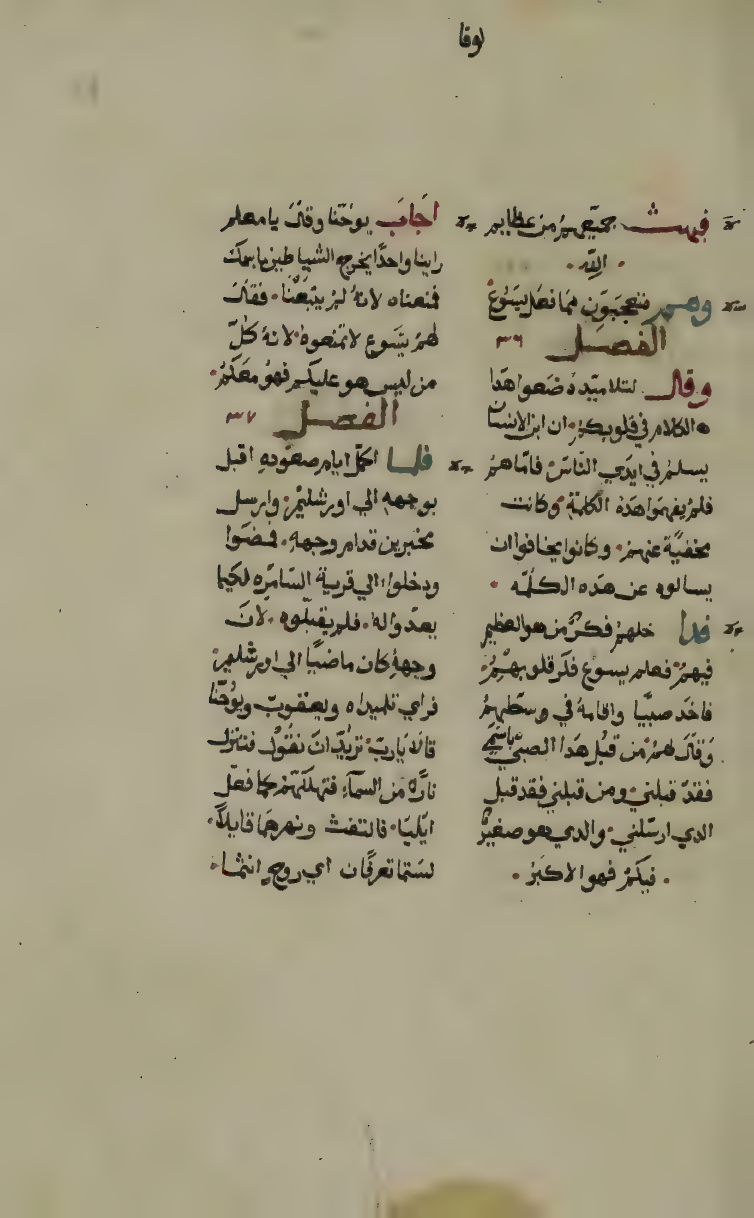 لوقا
فبهت جميعهم من عظايم
الله
وهم متعجبون مما فعل يسوع
الفصل ٣٦
وقال لتلاميذه ضعوا هدا
الكلام في قلوبكم ان ابن الانسان
يسلم في ايدي الناس فاما هم
فلم يفهموا هده الكلمة وكانت
مخفية عنهم وكانوا يخافوا ان
يسالوه عن هده الكلمه
فدا خلهم فكر من هو العظيم
فيهم فعلم يسوع فكر قلوبهم
فاخد صبيا واقامه في وسطهم
وقال لهم من قبل هدا الصبي باسمي
فقد قبلني ومن قبلني فقد قبل
الدي ارسلني والدي هو صغير
فيكم فهو الاكبر
اجاب يوحنا وقال يا معلم
راينا واحدا يخرج الشياطين باسمك
فمنعناه لانه لم يتبعنا فقال
لهم يسوع لا تمنعوه لانه كل
من ليس هو عليكم فهو معكم
الفصل ٣٧
فلما اكمل ايام صعوده اقبل
بوجهه الي اورشليم وارسل
مخبرين قدام وجهه فمضوا
ودخلوا الي قرية السامره لكيما
يعدوا له فلم يقبلوه لان
وجهه كان ماضيا الي اورشليم
فراي تلميداه ويعقوب ويوحنا
قالا يارب تريد ان نقول فتنزل
نار من السماء فتهلكهم كما فعل
ايليا فالتفت ونهرهما قايلا
لستما تعرفان اي روح انتما